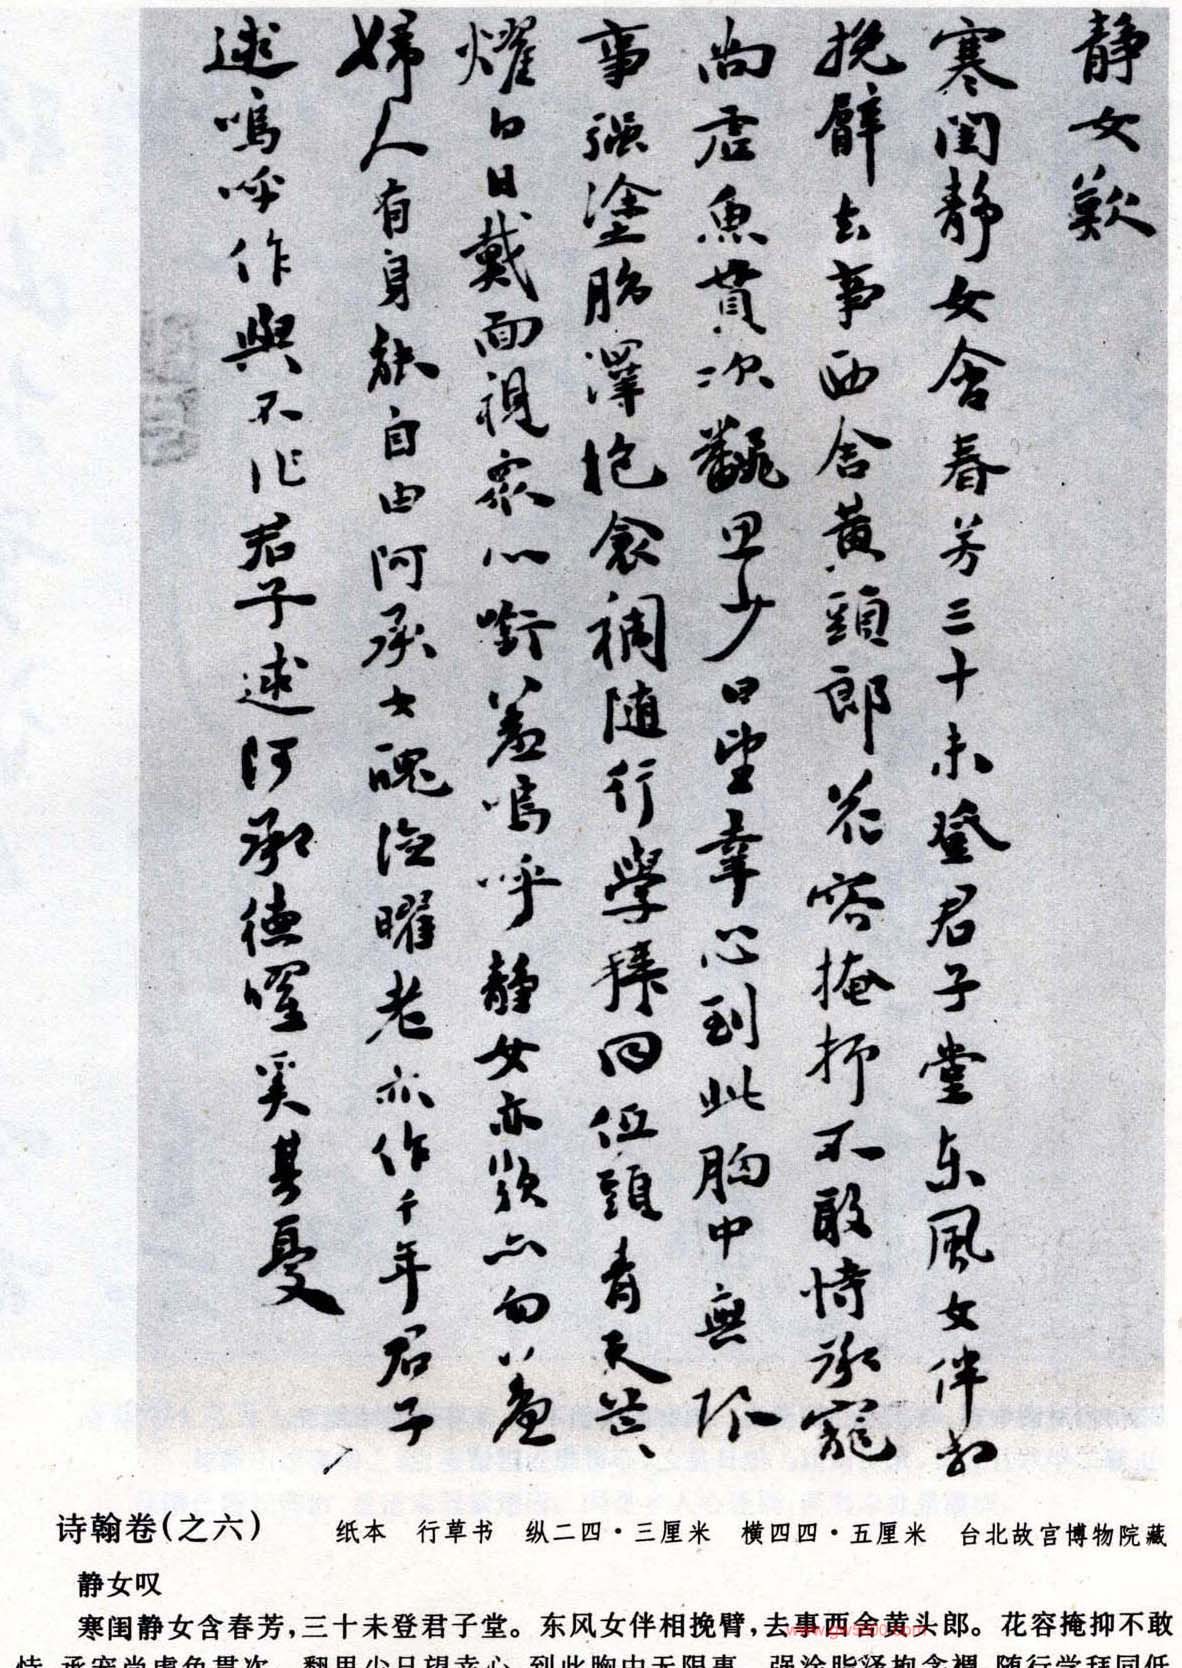 静女歎
寒閨静女含春芳三十未登君子堂東風女伴相
挽臂去事西舍黄頭郎花容掩抑不敢恃承寵
尚虚魚貫次飜思少日望幸心到此胸中無限
事强塗脂澤抱衾裯随行學拜同低頭青天茫
燿白日戴面視衆心㘅羞嗚呼静女亦勿羞
婦人有身能自由阿承女醜德曜老亦作千年君子
逑嗚呼作與不作君子逑阿承德曜奚其憂
诗翰卷(之六) 纸本 行草书 纵二四·三厘米 横四四·五厘米 台北故宫博物院藏
静女叹
寒闺静女含春芳,三十未登君子堂。东风女伴相挽臂,去事西舍黄头郎。花容掩抑不敢
恃,承宠尚虚鱼贯次。翻思少日望幸心,到此胸中无限事。强涂脂泽抱衾裯,随行学拜同低